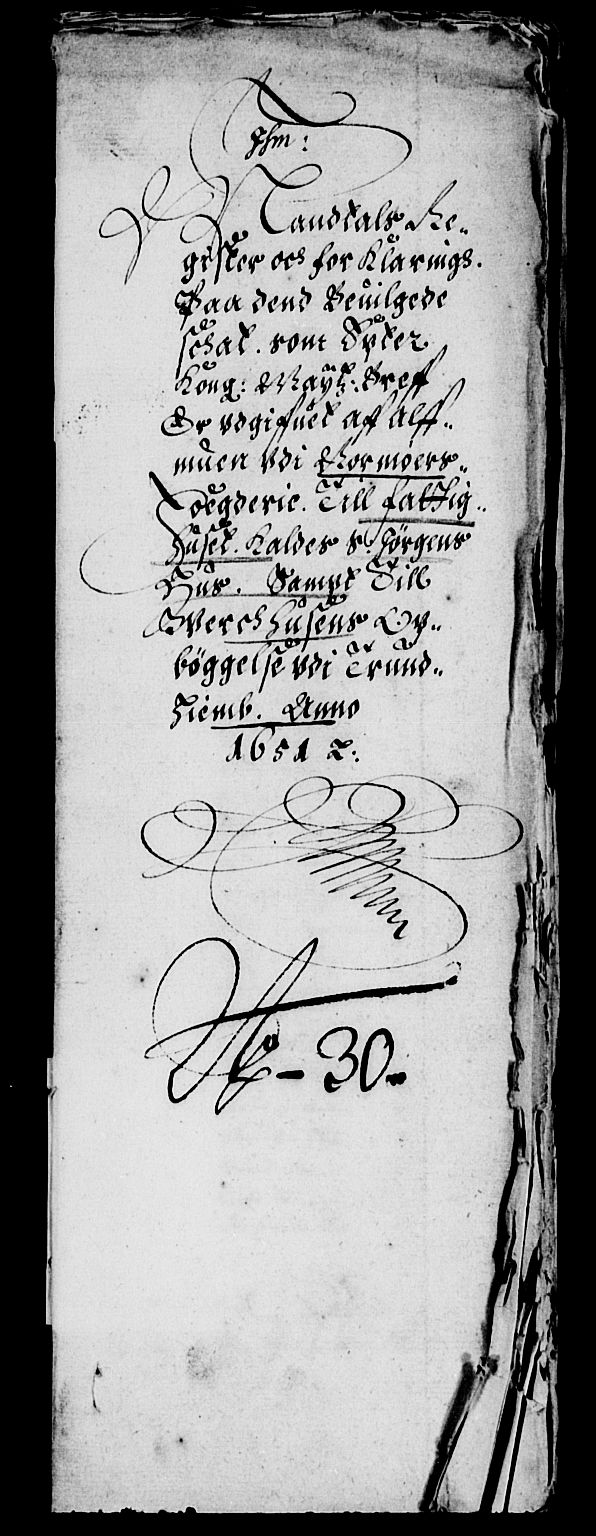 Mandtals Re„
gister och for Klaring.
Paa dend Beuilgede
schat. som Epter
Kong: Maÿtz: Breff
Er vdgiffuet aff Alff„
muen vdi Normoers„
fougderie. Till fattig„
huset. Kaldes S. Jörgens
Huus. Sampt Till
Werchhusens Op„
böggelse vdi Trund„
hiemb. Anno
1651
No – 30.